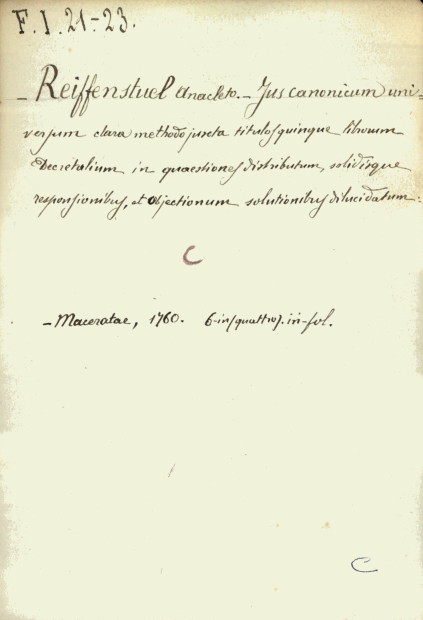 F. I. 21-23.
- Reiffenstuel Anacleto. - Jus canonicum uni-
versum clara methodo juxta titulos quinque librorum
Decretalium in quaestiones distributum, solidisque
responsionibus, et objectionum solutionibus dilucidatum.
C
- Maceratae, 1760. 6-in(quattro). in-fol.
C